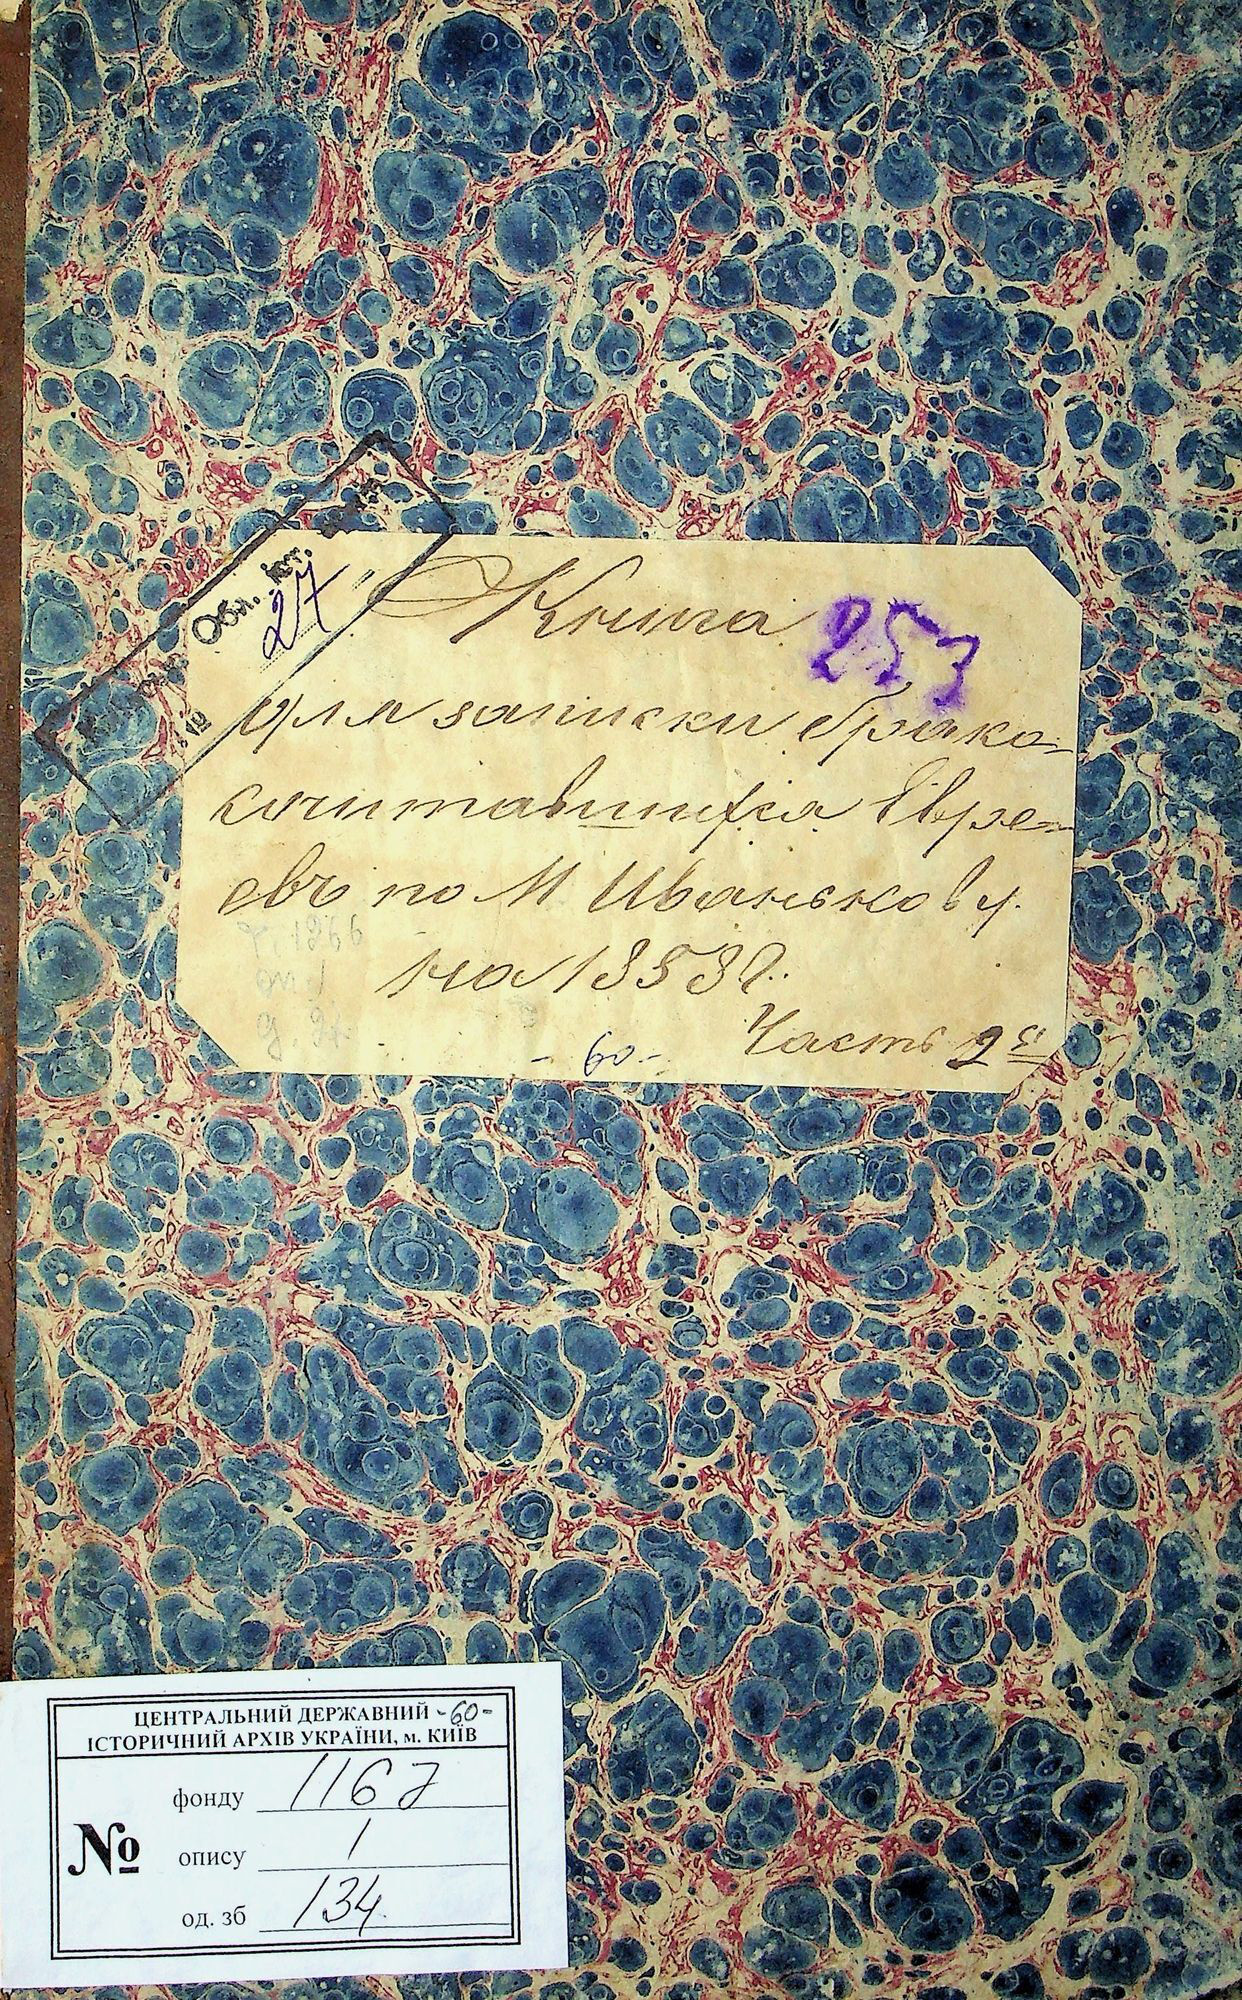 Обл. ист.
27
Книга
253
для записки брако-
сочитавшихся Евре-
евъ по М. Иванькову.
на 1853 г.
Часть 2я
- 60 -
ЦЕНТРАЛЬНИЙ ДЕРЖАВНИЙ -60-
ІСТОРИЧНИЙ АРХІВ УКРАЇНИ, м. КИЇВ
№
фонду 1167
опису 1
од. зб 134